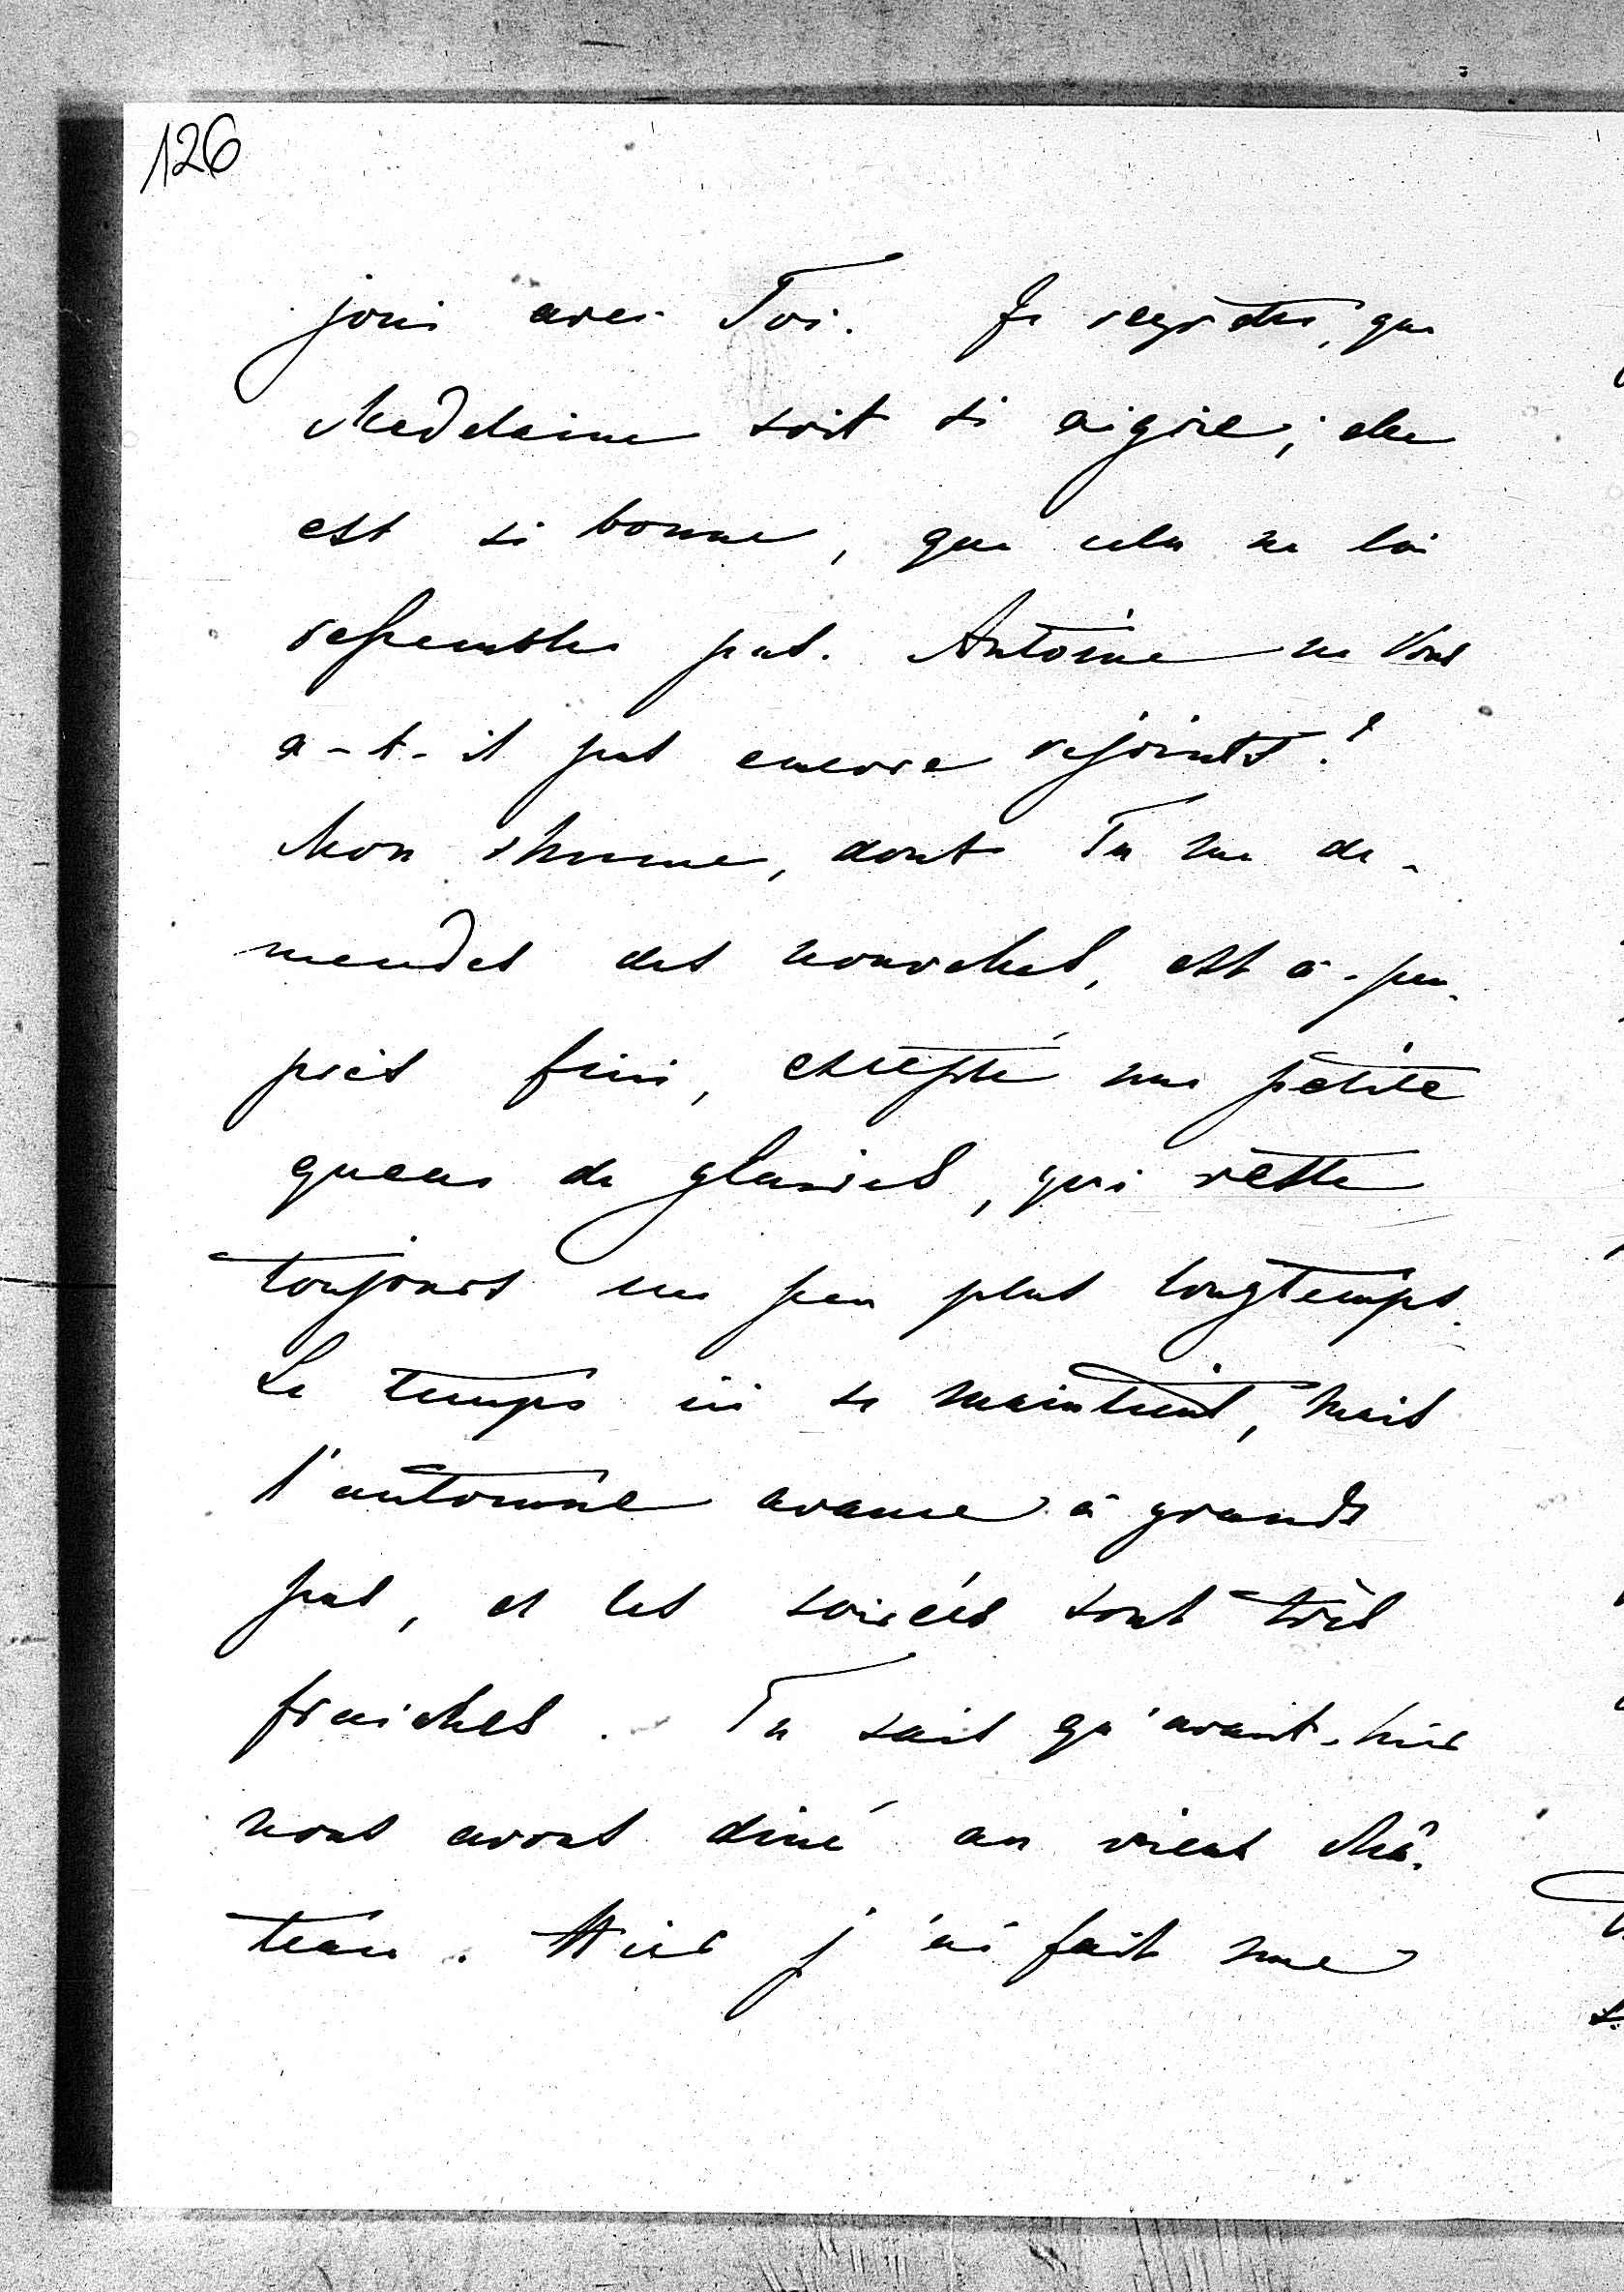 126
joui avec Toi. Je regrette, que
Madelaine soit si aigrie; elle
est si bonne, que cela ne lui
ressemble pas. Antoine ne Vous
a-t-il pas encore rejoints?
Mon rhume, dont Tu me de-
mandes des nouvelles, est à-peu-
près fini, excepté une petite
queue de glaires, qui reste
toujours un peu plus longtemps.
Le temps ici se maintient, mais
l'automne avance à grands
pas, et les soirées sont très
fraiches. Tu sais qu'avant-hier
nous avons diné au vieux châ-
teau. Hier j'ai fait une